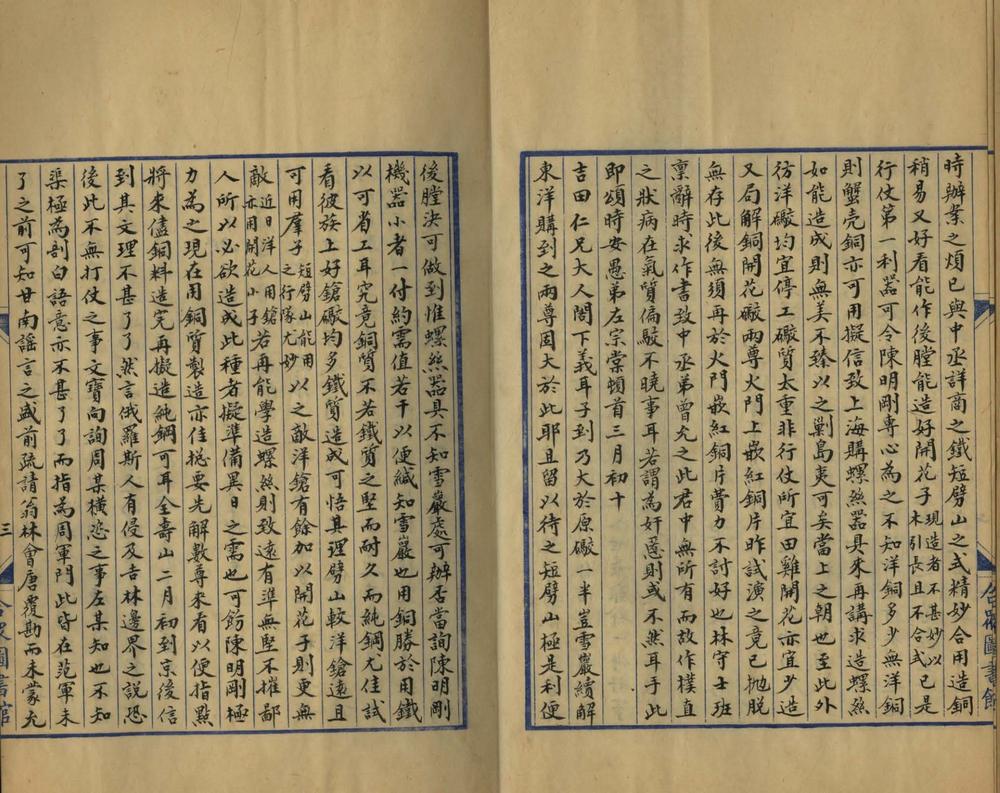 時辦案之煩已與中丞詳商之鐵短劈山之式精妙合用造銅
稍易又好看能作後膛能造好開花子現造者不甚妙以木引長且不合式已是
行仗第一利器可令陳明剛專心為之不知洋銅多少無洋銅
則蟹壳銅亦可用擬信致上海購螺絲器具來再講求造螺絲
如能造成則無美不臻以之剿島夷可矣當上之朝也至此外
彷洋礮均宜停工礮質太重非行仗所宜田雞開花亦宜少造
又局解銅開花礮兩尊火門上嵌紅銅片昨試演之竟已拋脫
無存此後無須再於火門嵌紅銅片費力不討好也林守士班
稟辭時求作書致中丞弟曾允之此君中無所有而故作樸直
之狀病在氣質偏駁不曉事耳若謂為奸慝則或不然耳手此
即頌時安愚弟左宗棠頓首三月初十
吉田仁兄大人閣下義耳子到乃大於原礮一半豈雪巖續解
東洋購到之兩尊固大於此耶且留以待之短劈山極是利便
後膛決可做到惟螺絲器具不知雪巖處可辦否當詢陳明剛
機器小者一付約需值若干以便緘知雪巖也用銅勝於用鐵
以可省工耳究竟銅質不若鐵質之堅而耐久而純鋼尤佳試
看彼族上好鎗礮均多鐵質造成可悟其理劈山較洋鎗遠且
可用羣子短劈山能用之行隊尤妙以之敵洋鎗有餘加以開花子則更無
敵近日洋人用鎗亦用開花小子若再能學造螺絲則致遠有準無堅不摧鄙
人所以必欲造成此種者擬準備異日之需也可飭陳明剛極
力為之現在用銅質製造亦佳揔要先解數尊來看以便指點
將來儘銅料造完再擬造純鋼可耳全壽山二月初到京後信
到其文理不甚了了然言俄羅斯人有侵及吉林邊界之說恐
後此不無打仗之事文寶向詢周某橫恣之事左某知也不知
渠極為剖白語意亦不甚了了而指為周軍門此皆在范軍未
了之前可知甘南謠言之盛前疏請翁林會唐覆勘而未蒙允
三
合眾圖書館
合眾圖書館